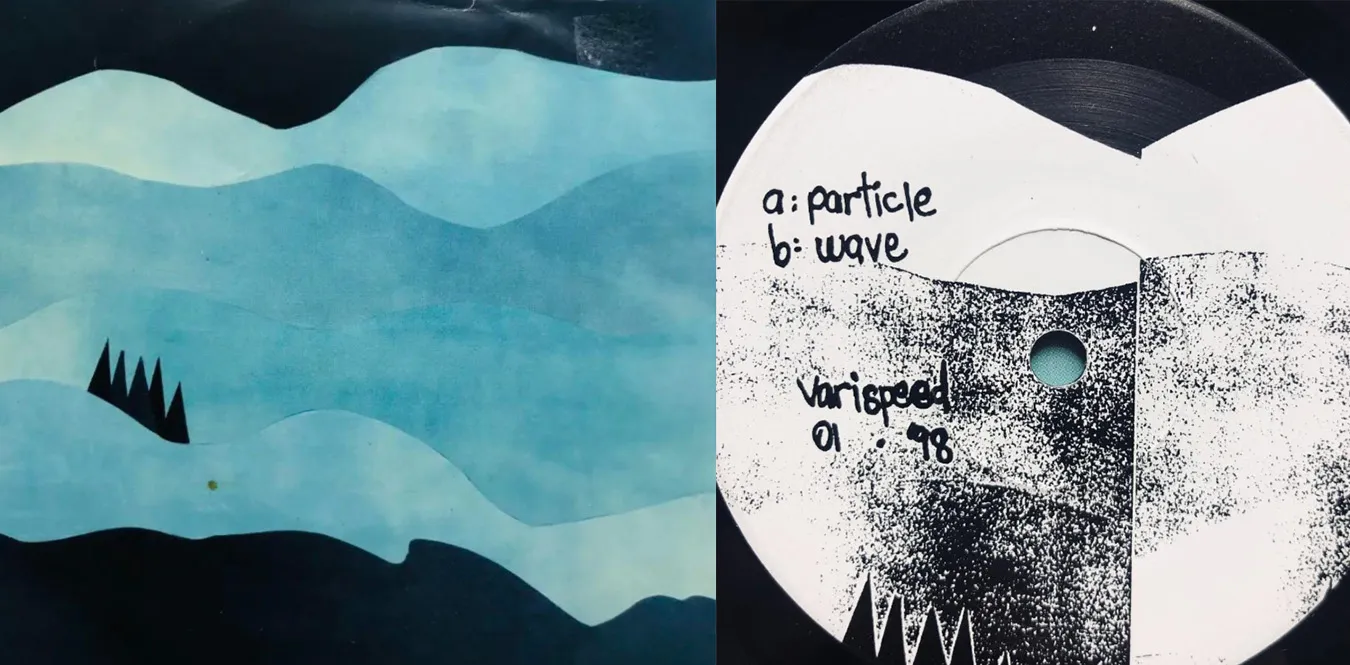 a: particle
b: wave
varispeed
01 . '98